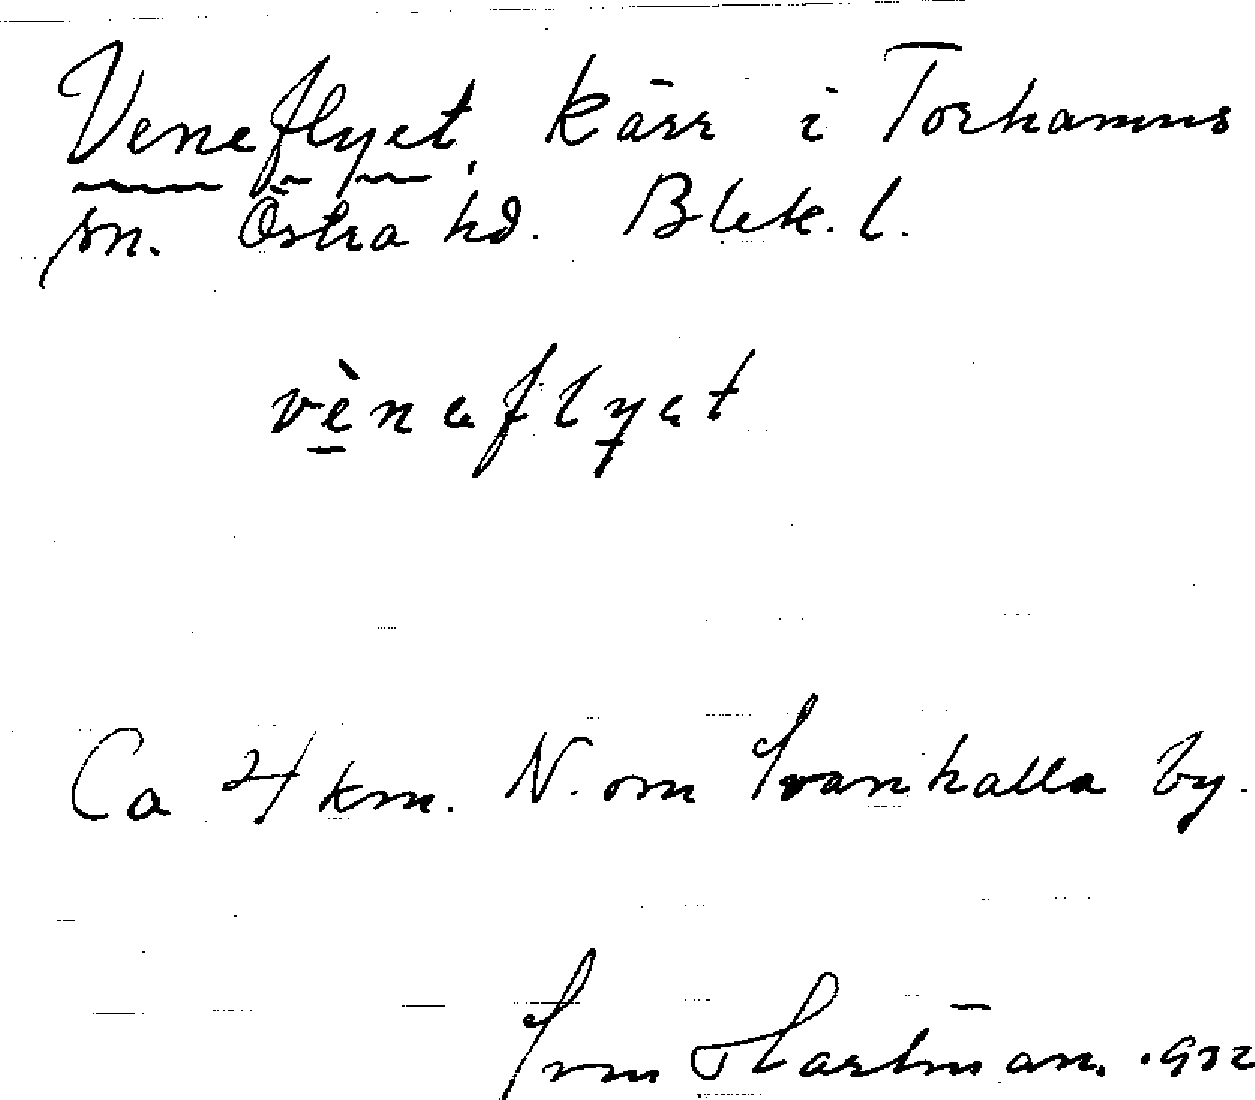 Veneflyet, kärr i Torhamns
sn. Östra hd. Blek. l.
vèneflyet
Ca 4 km. N. om Ivanhalla by.
Hartman.